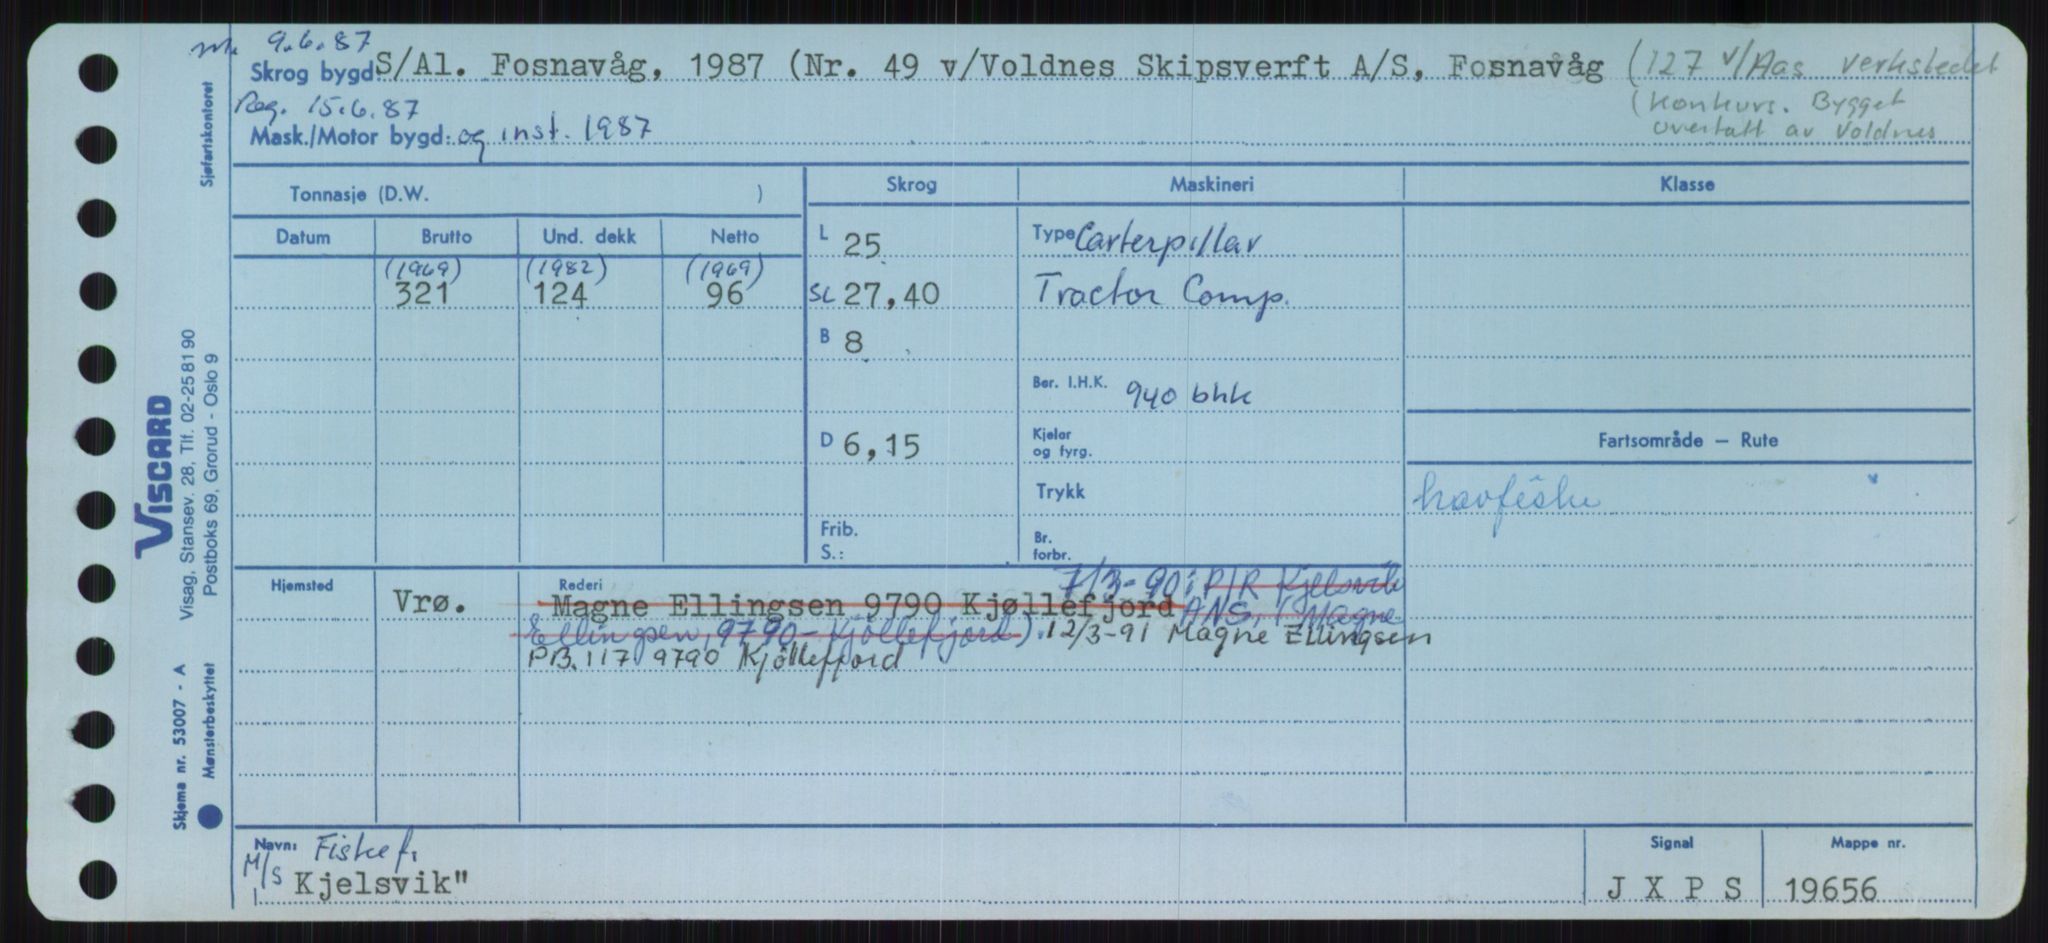 9.6.87
Skrog bygd: S/Al. Fosnavåg, 1987 (Nr. 49 v/Voldnes Skipsverft A/S, Fosnavåg (127 v/Aas verkstedet
Reg. 15.6.87 (konkurs. Bygget
Mask./Motor bygd: og inst. 1987 overtatt av Voldnes
Sjøfartskontoret
VISCARD
Visag, Stansev. 28, Tlf. 02-25 81 90
Postboks 69, Grorud - Oslo 9
Skjema nr. 53007 - A
Mønsterbeskyttet
Tonnasje (D.W. ) Skrog Maskineri Klasse
Datum Brutto Und. dekk Netto
(1969) (1982) (1969)
321 124 96
L 25
SL 27,40
B 8
D 6,15
Frib.
S.:
Type Carterpillar
Tractor Comp.
Ber. I.H.K. 940 bhk
Kjeler
og fyrg.
Trykk
Br.
forbr.
Fartsområde — Rute
havfiske
Hjemsted Rederi 7/3-90: P/R Kjelsvik
Vrø. Magne Ellingsen 9790 Kjøllefjord ANS, (Magne
Ellingsen, 9790 - Kjøllefjord). 12/3-91 Magne Ellingsen
P.B. 117 9790 Kjöllefjord
Navn: Fiskef.
M/S Kjelsvik"
Signal Mappe nr.
J X P S 19656